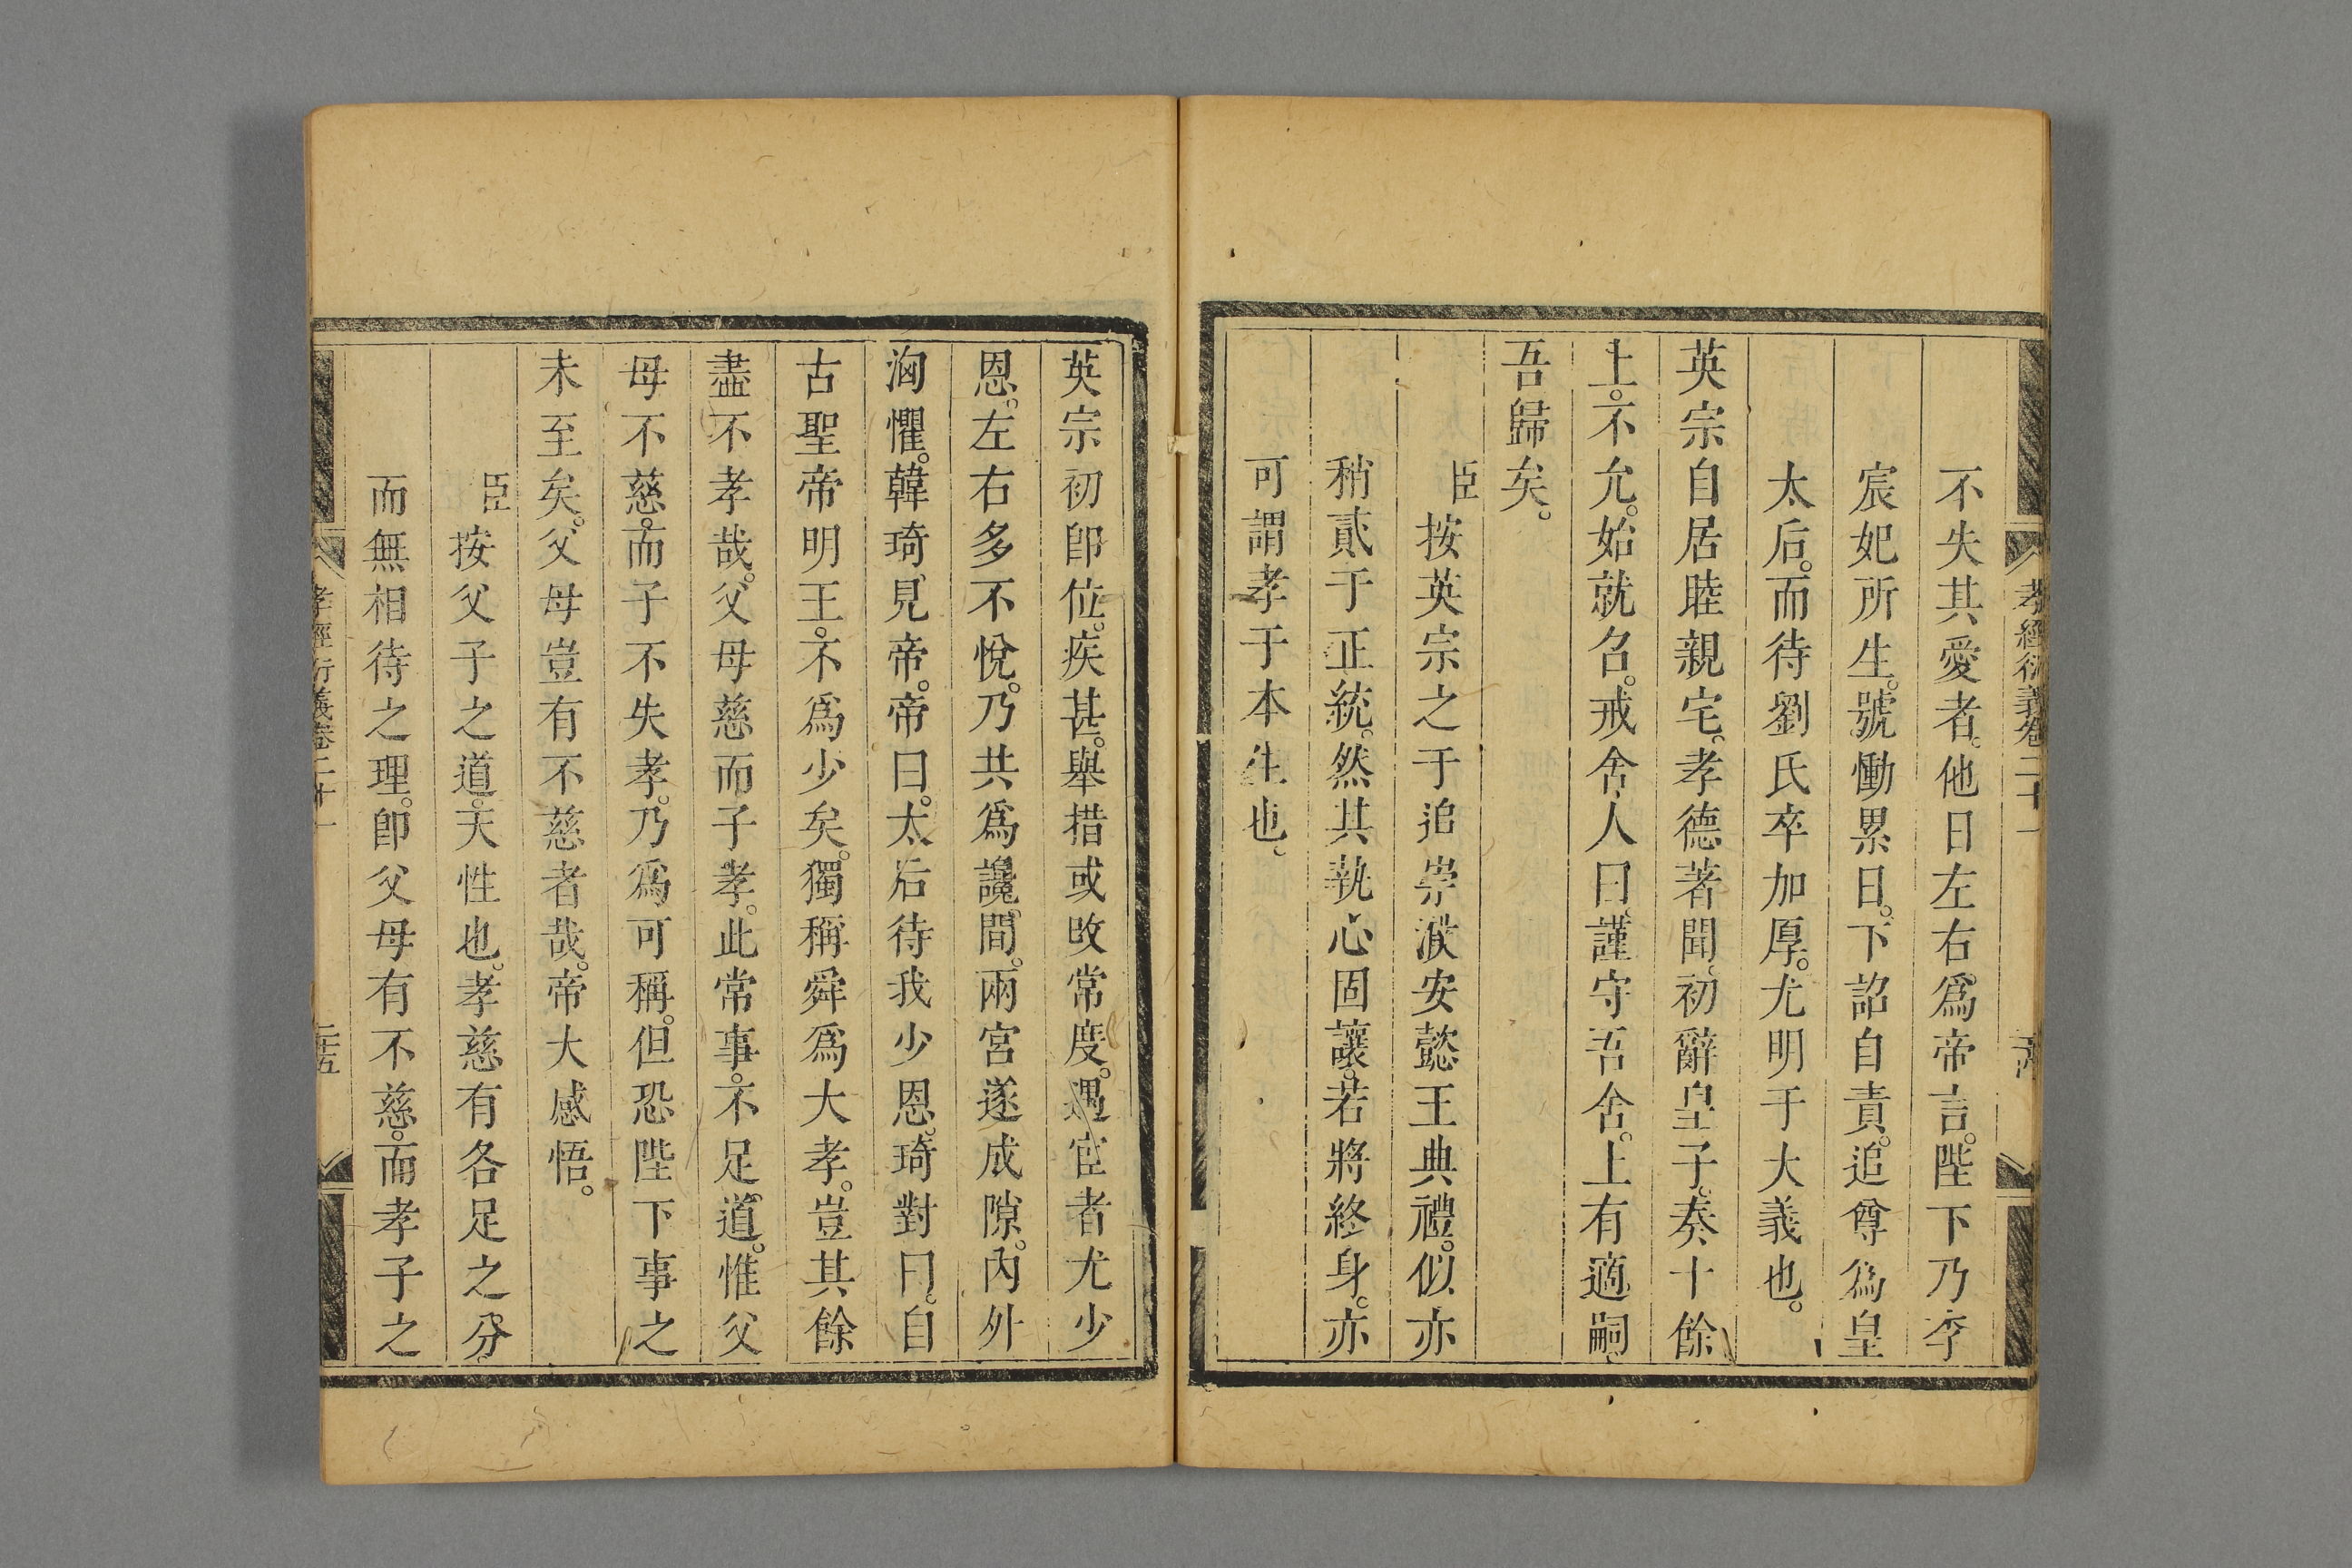 孝經衍義卷二十一
不失其愛者。他日左右。爲帝言。陛下乃李
宸妃所生。號慟累日。下詔自責。追尊爲皇
太后。而待劉氏卒加厚。尤明于大義也。
英宗自居睦親宅。孝德著聞。初辭皇子。奏十餘
上。不允。始就名。戒舍人曰。謹守吾舍。上有適嗣
吾歸矣。
臣按英宗之于追崇濮安懿王典禮。似亦
稍貳于正統。然其執心固讓。若將終身。亦
可謂孝于本生也。
英宗初卽位。疾甚。舉措或改常度。遇宦者尤少
恩。左右多不悅。乃共爲讒間。兩宮遂成隙。內外
洶懼。韓琦見帝。帝曰。太后待我少恩。琦對曰。自
古聖帝明王。不爲少矣。獨稱舜爲大孝。豈其餘
盡不孝哉。父母慈而子孝。此常事。不足道。惟父
母不慈。而子不失孝。乃爲可稱。但恐陛下事之
未至矣。父母豈有不慈者哉。帝大感悟。
臣按父子之道。天性也。孝慈有各足之分。
而無相待之理。卽父母有不慈。而孝子之
孝經衍義卷二十一
二十五